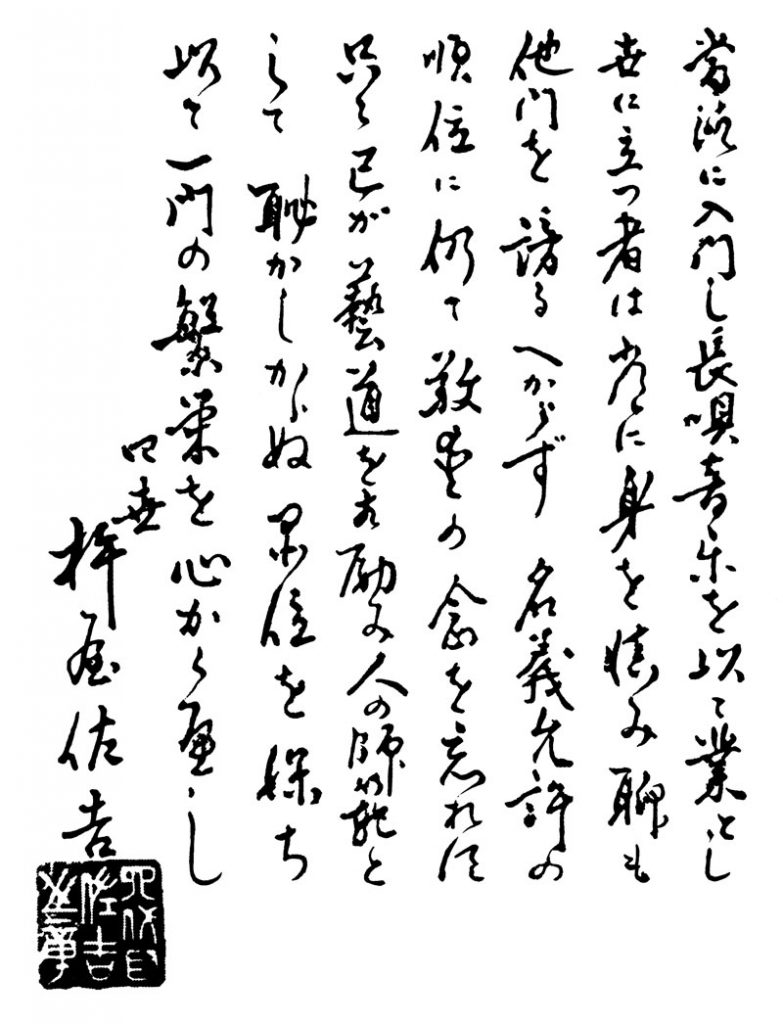 當派に入門し長唄音楽を以て業とし
世に立つ者は常に身を慎み聊も
他門を謗るへからず名義允許の
順位に仍て敬愛の念を忘れず
只々己が藝道を励み人の師範と
して耻かしからぬ品位を保ち
以て一門の繁栄を心がく可し
四世
杵屋佐吉
四代目
佐吉